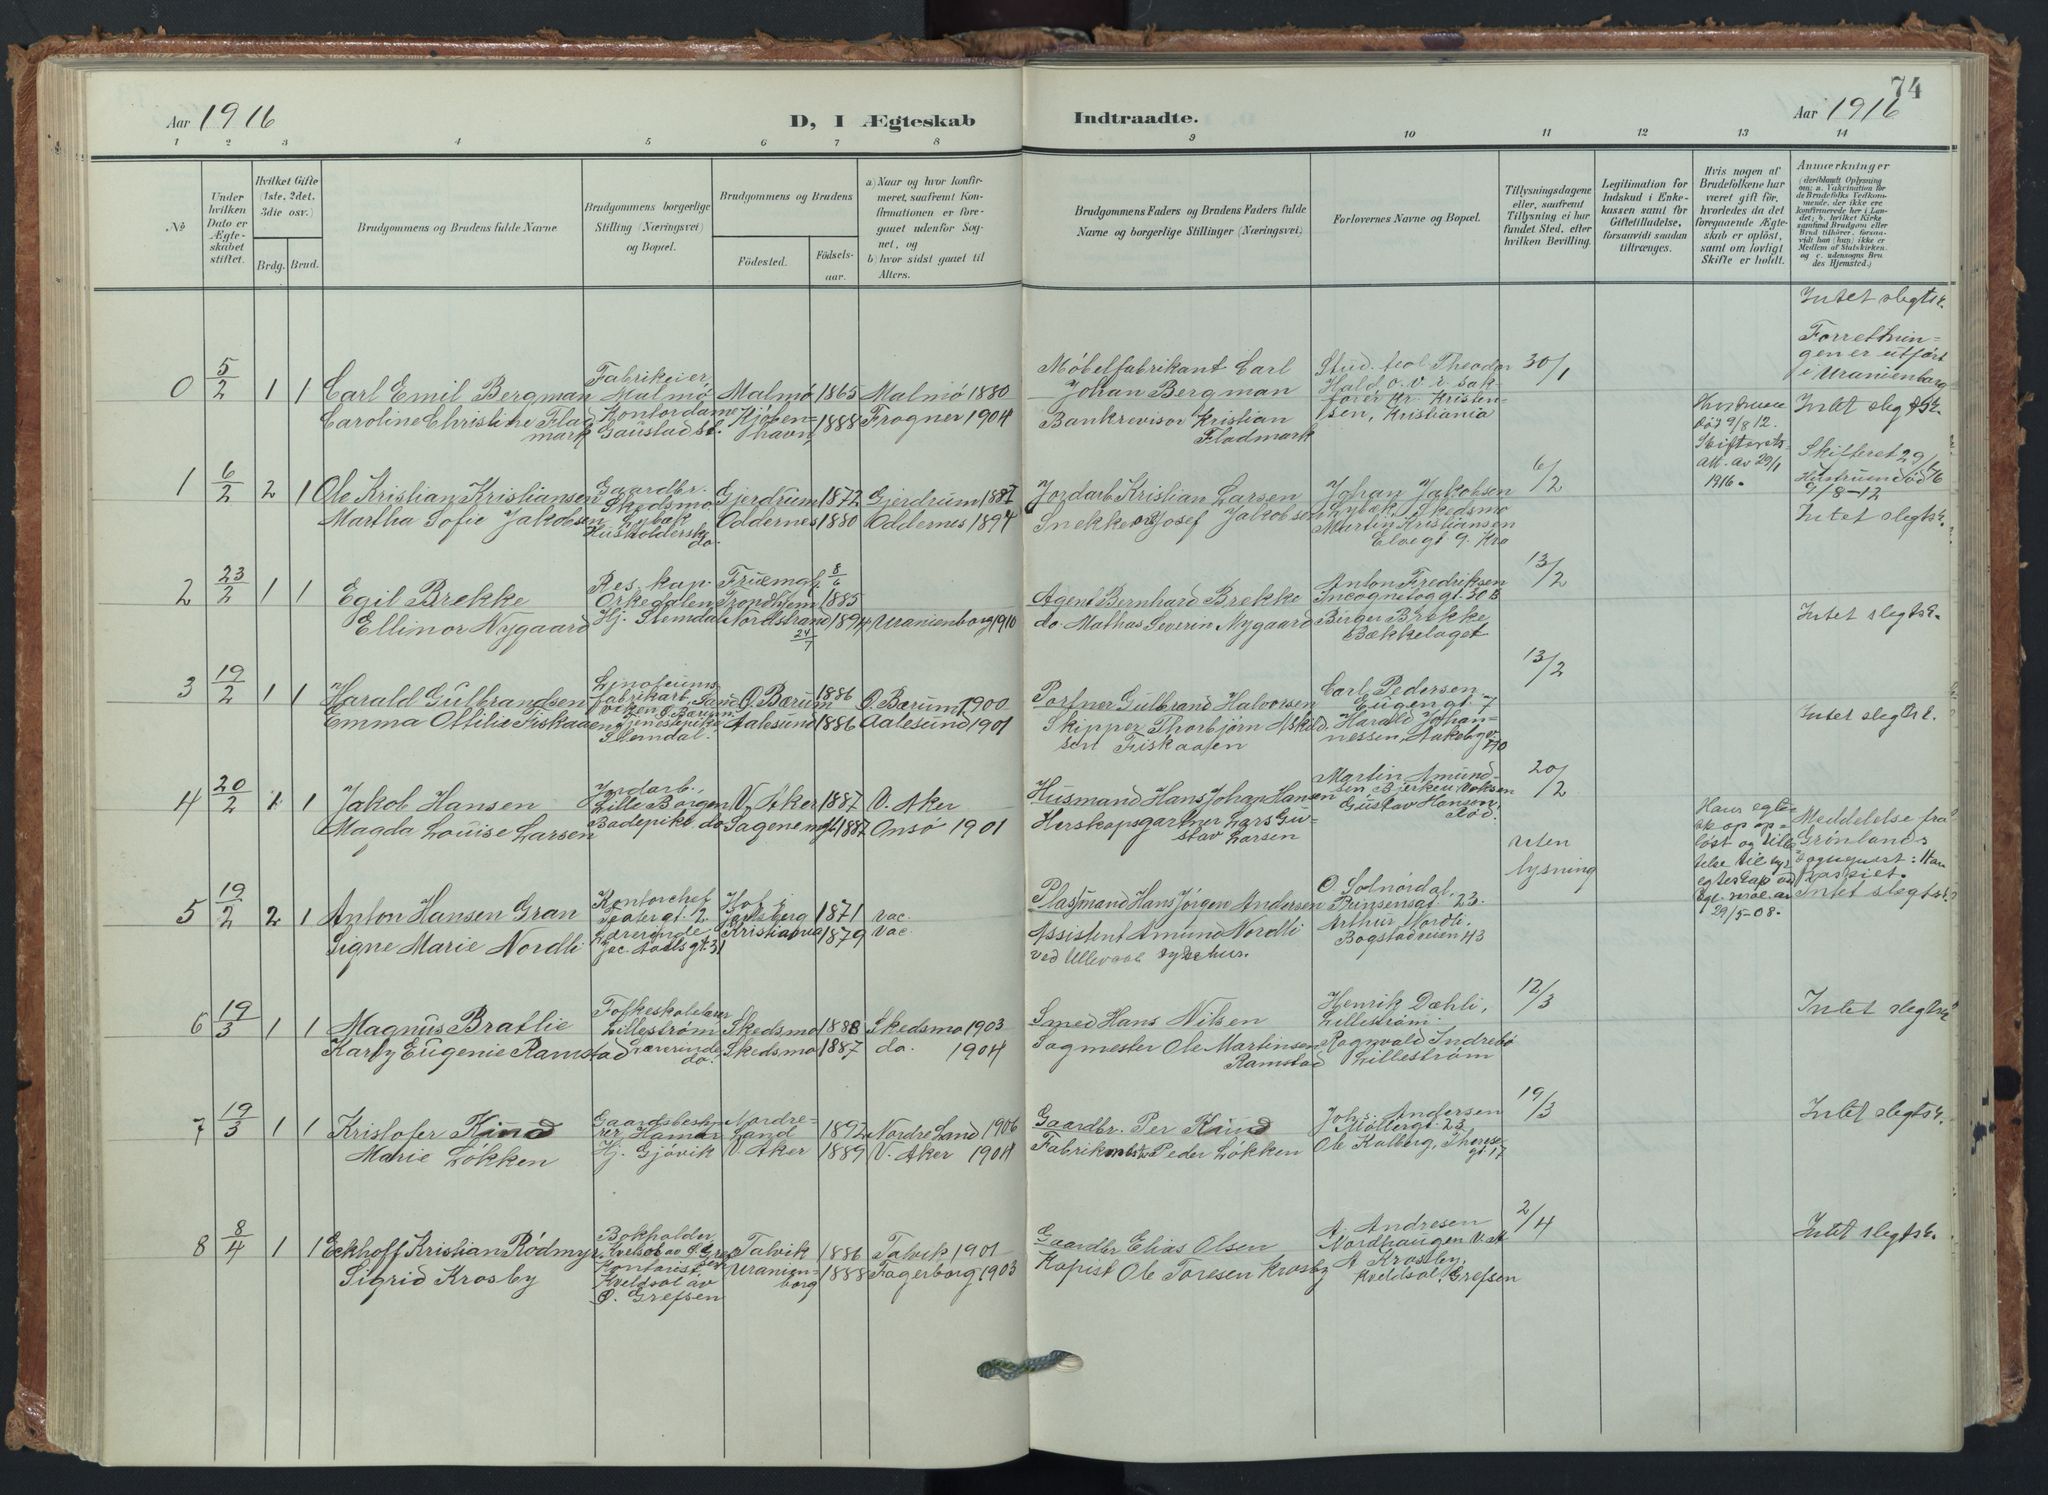 74
Aar 1916
D, I Ægteskab
Indtraadte.
Aar 1916
1 2 3 4 5 6 7 8 9 10 11 12 13 14
No
Under hvilken Dato er Ægteskabet stiftet.
Hvilket Gifte (1ste, 2det, 3die osv.)
Brdg. Brud.
Brudgommens og Brudens fulde Navne
Brudgommens borgerlige Stilling (Næringsvei) og Bopæl.
Brudgommens og Brudens
Födested.
Födselsaar.
a) Naar og hvor konfirmeret, saafremt Konfirmationen er foregaaet udenfor Sognet, og
b) hvor sidst gaaet til Alters.
Brudgommens Faders og Brudens Faders fulde Navne og borgerlige Stillinger (Næringsvei)
Forlovernes Navne og Bopæl.
Tillysningsdagene eller, saafremt Tillysning ei har fundet Sted, efter hvilken Bevilling.
Legitimation for Indskud i Enkekassen samt for Giftetilladelse, forsaavidt saadan tiltrænges.
Hvis nogen af Brudefolkene har været gift för, hvorledes da det foregaaende Ægteskab er oplöst, samt om lovligt Skifte er holdt.
Anmærkninger
(deriblandt Oplysning om: a. Vakcination for de Brudefolks Vedkommende, der ikke ere konfirmerede her i Landet; b. hvilket Kirkesamfund Brudgom eller Brud tilhörer, forsaavidt han (hun) ikke er Medlem af Statskirken, og c. udensogns Brudes Hjemsted.)
Intet slegtsk.
0 5/2 1 1 Carl Emil Bergman
Fabrikeier, Malmö
Malmö 1865 Malmö 1880
Møbelfabrikant Carl Johan Bergman
Stud. teol Theodor Hald, o.r. sakförer Kr. Kristensen, Kristiania
30/1
Forretningen er utført i Uranienborg
Caroline Christine Fladmark
Kontordame Gaustad st.
Kjöbenhavn, 1888 Frogner 1904
Bankrevisor Kristian Fladmark
Hustruen död 9/8 12. Skifterets att. av 29/1 1916.
Intet slegtsk.
1 6/2 2 1 Ole Kristian Kristiansen
Gaardbr. Skedsmo
Gjerdrum 1872 Gjerdrum 1887
Jordarb Kristian Larsen
Johan Jakobsen Lybæk, Skedsmo
6/2
Skifteret 29/1 16 Hustruen död 9/8-12
Martha Sofie Jakobsen
Lybæk Husholdersk do.
Oddernes 1880 Oddernes 1894
Snekker Josef Jakobsen
Martin Kristiansen Elvegt 9. Kra
Intet slegtsk.
2 23/2 1 1 Egil Brekke
Res. kap. Orkedalen
Trondhjem 8/6 1885
Agent Bernhard Brekke
Anton Fredriksen Incognitogt. 30B
13/2
Ellinor Nygaard
Hj. Slemdal
Nordstrand 24/7 1894 Uranienborg 1910
do Mathas Severin Nygaard
Birger Brekke Bækkelaget
Intet slegtsk.
3 19/2 1 1 Harald Gulbrandsen
Linoleumsfabrikarb, Sandviken Ö. Bærum
Ö. Bærum 1886 Ö. Bærum 1900
Portner Gulbrand Halvorsen
Carl Pedersen Eugengt 7
13/2
Emma Ottilie Fiskaaen
Tjenestepike Slemdal.
Aalesund 1886 Aalesund 1901
Skipper Thorbjørn Askildsen Fiskaaen
Harald Johannessen, Aakebgvn 40
Intet slegtsk.
4 20/2 1 1 Jakob Hansen
Jordarb. Lille Borgen
V. Aker 1887 V. Aker
Husmand Hans Johan Hansen
Martin Amundsen, Bjerken Voksen
20/2
Magda Louise Larsen
Badepike do
Sagene mgh 1882 Onsö 1901
Herskapsgartner Lars Gustav Larsen
Gustav Hansen, Röd.
5 19/2 2 1 Anton Hansen Gran
Kontorchef Teatergt 2.
Hof i Jarlsberg 1871 vac.
Plasmand Hans Jörgen Andersen
O Solnördal, Prinsensgt 23.
uten lysning
29/5-08.
Meddelelse fra Grønlands
Intet slegtsk.
Signe Marie Nordli
Lærerinde, Jac. Aalls gt. 31
Kristiania 1879 vac
Assistent Amund Nordli ved Ullevaal sykehus.
Arthur Nordli Bogstadveien 43
6 19/3 1 1 Magnus Bratlie
Folkeskolelærer Lilleström
Skedsmo 1888 Skedsmo 1903
Smed Hans Nilsen
Henrik Dæhli, Lillestrøm.
12/3
Intet slegtsk.
Karly Eugenie Ramstad
Lærerinde do.
Skedsmo 1887 do. 1904
Sagmester Ole Martinsen Ramstad
Ragnvald Indrebø Lillestrøm
7 19/3 1 1 Kristofer Kind
Gaardsbestyrer Hamar
Nordre-Land 1892 Nordre Land 1906
Gaardbr. Per Kind
Johs. Andersen Møllergt. 23
19/3
Intet slegtsk.
Marie Løkken
Hj. Gjövik
V. Aker 1889 V. Aker 1904
Fabrikmester Peder Løkken
Ole Kalberg, Theresegt. 17
8 8/4 1 1 Eckhoff Kristian Rödmyr
Bokholder Kveldsol av Ö Grefsen
Talvik 1886 Talvik 1901
Gaardbr Elias Olsen
A. Andresen Nordhaugen V. A
2/4
Intet slegtsk.
Sigrid Krosby
Kontorist Kveldsol av Ö. Grefsen
Uranienborg 1888 Fagerborg 1903
Kopist Ole Toresen Krosby
A Krosby, Kveldsol, Grefsen